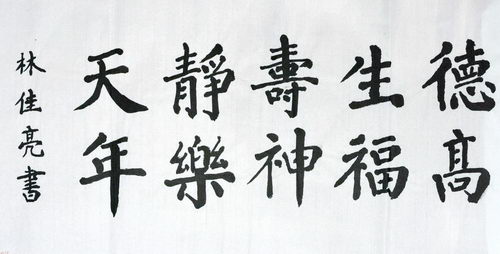 德高
生福
壽神
靜樂
天年
林佳亮書